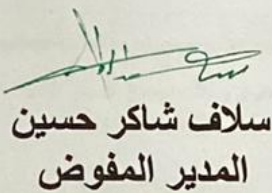 سلاف شاكر حسين
المدير المفوض